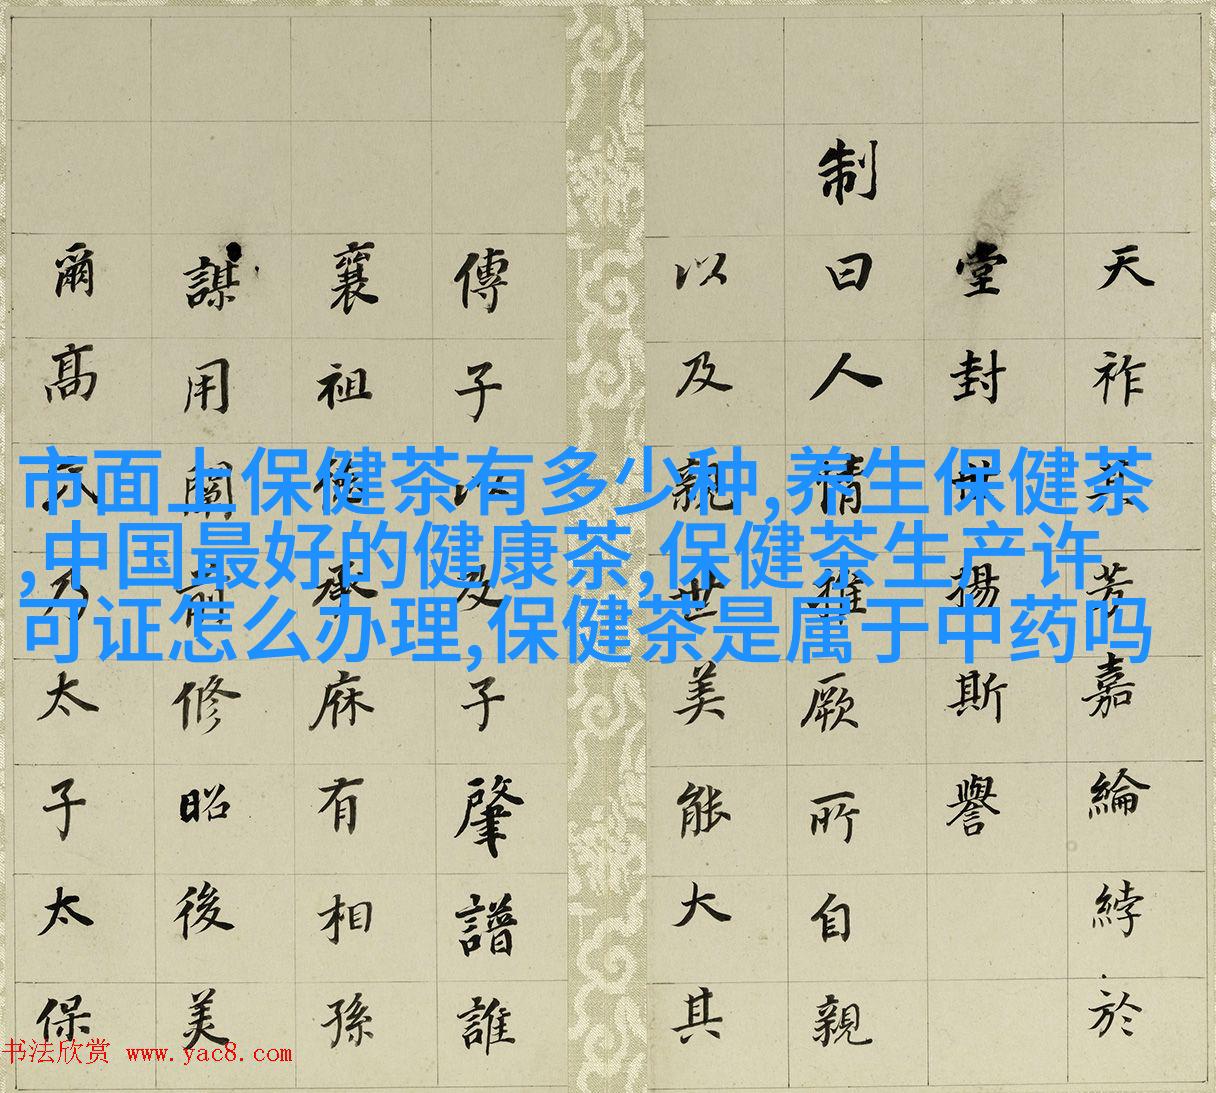 市面上保健茶有多少种,养生保健茶
,中国最好的健康茶,保健茶生产许
可证怎么办理,保健茶是属于中药吗
天祚其芳嘉綸綍於
堂封揚斯譽
制曰人情推厥所自親
以及親世美能大其
傳子以及子肇譜誰
襄祖承庥有相孫
謀用闡前修昭後美
爾高乃太子太保
书法欣赏 www.yac8.com